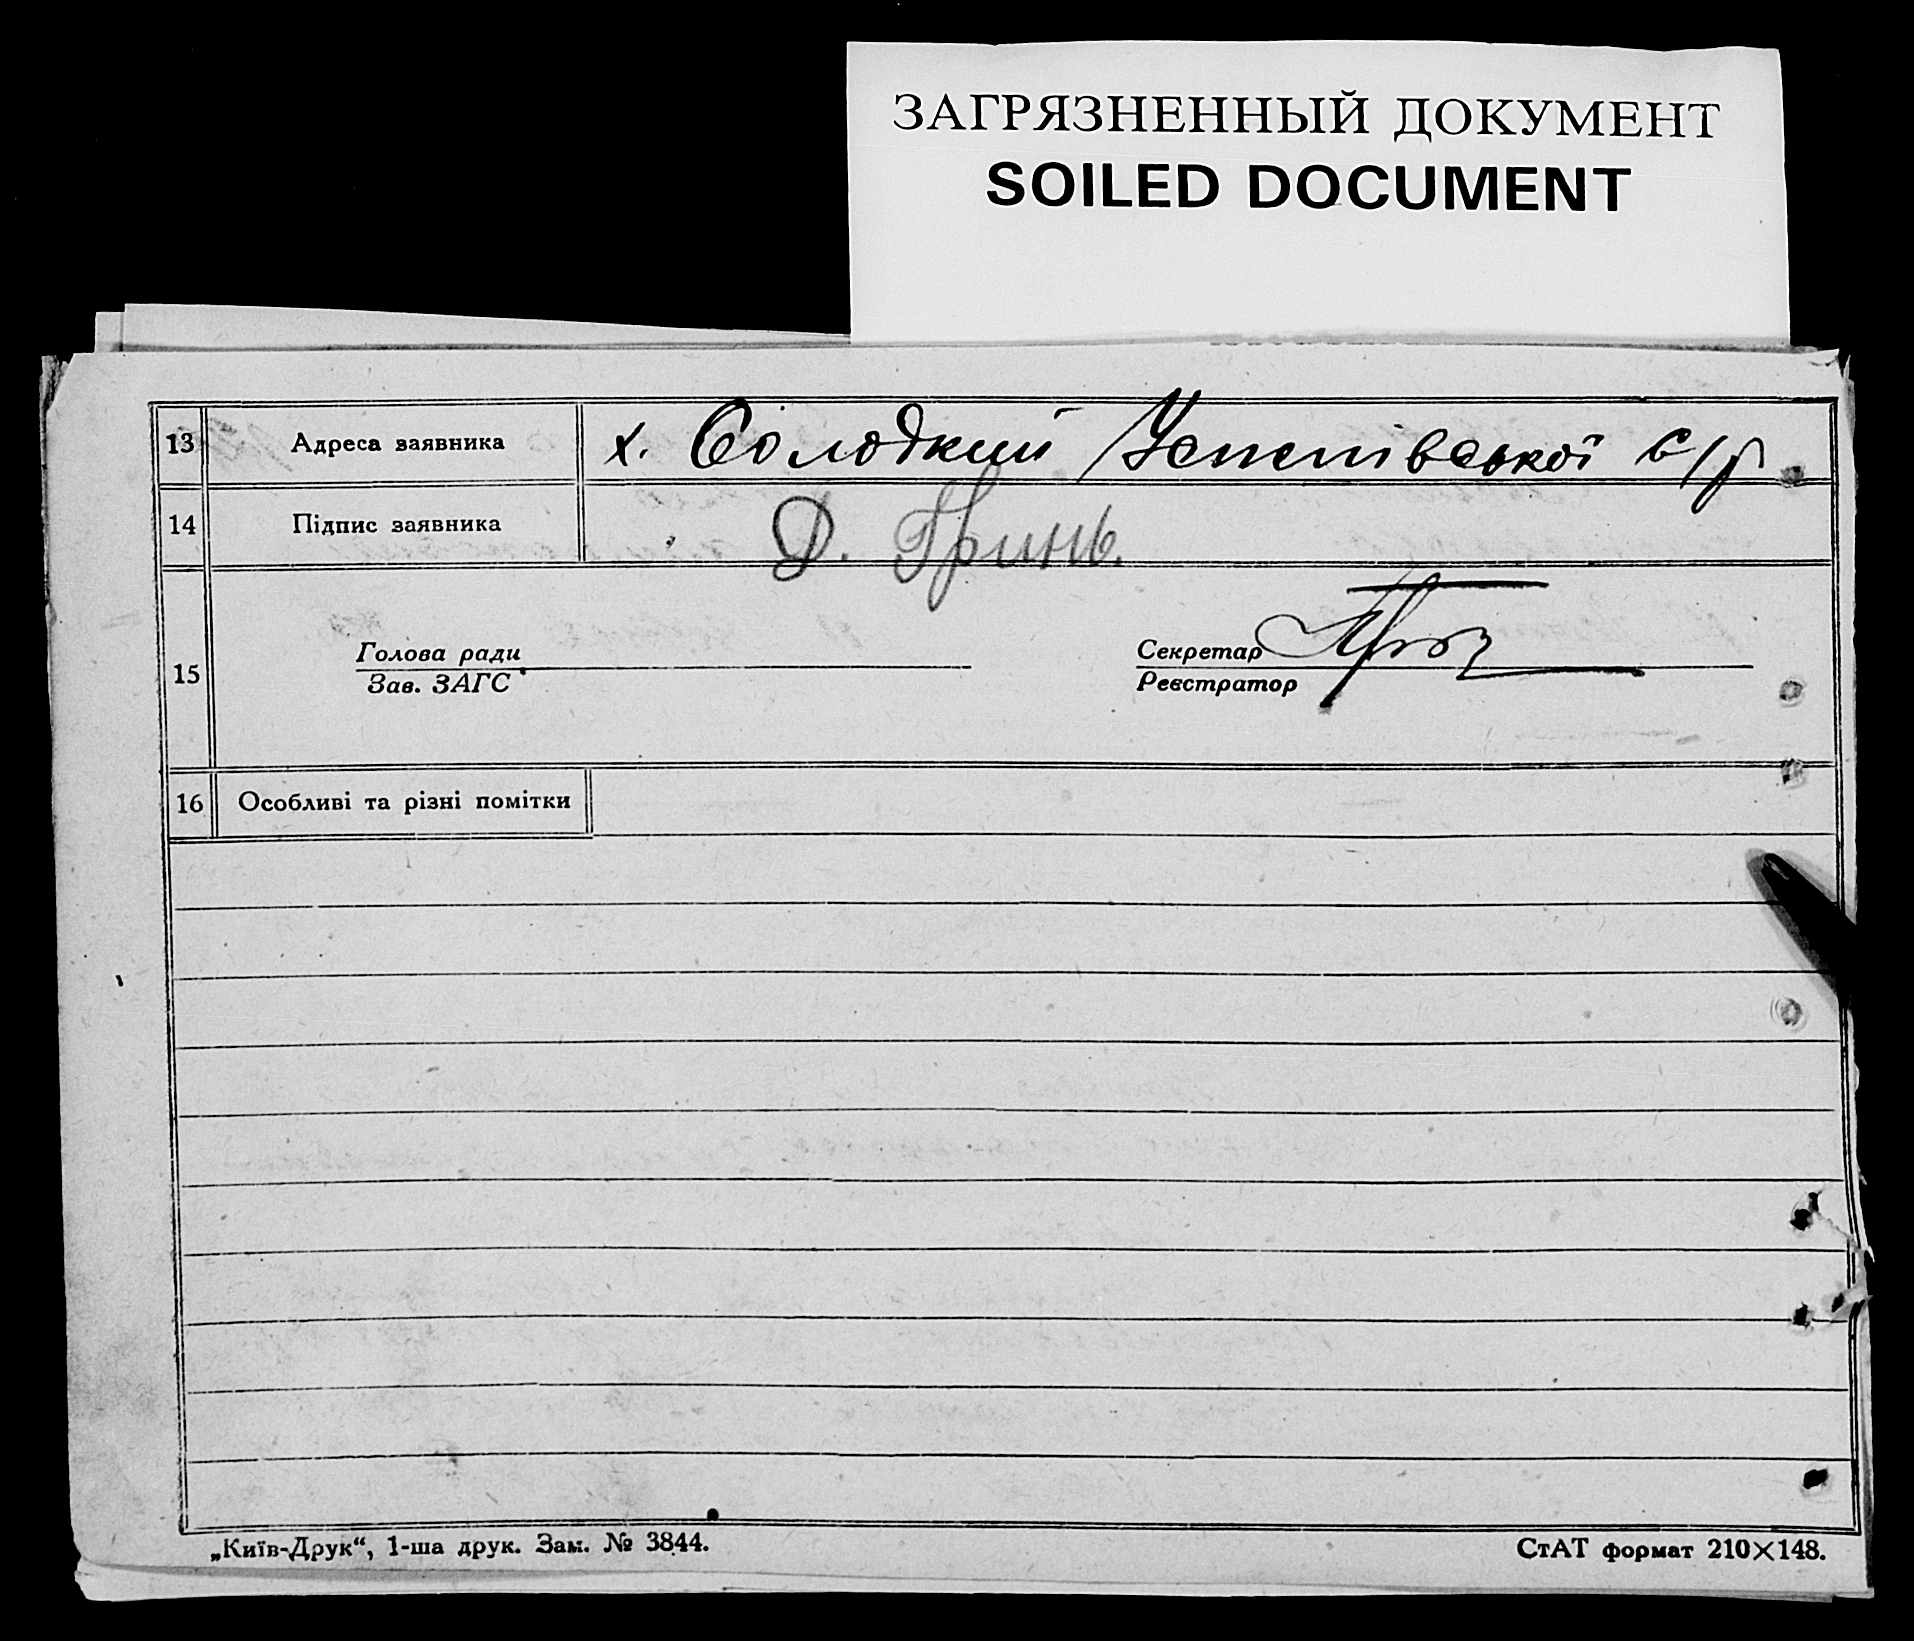 ЗАГРЯЗНЕННЫЙ ДОКУМЕНТ
SOILED DOCUMENT
13 Адреса заявника х. Солодкий Успенівської с/р
14 Підпис заявника Д. Гринь.
15
Голова ради Секретар
Зав. ЗАГС Реєстратор
16 Особливі та різні помітки
„Київ-Друк“, 1-ша друк. Зам. № 3844. СтАТ формат 210×148.